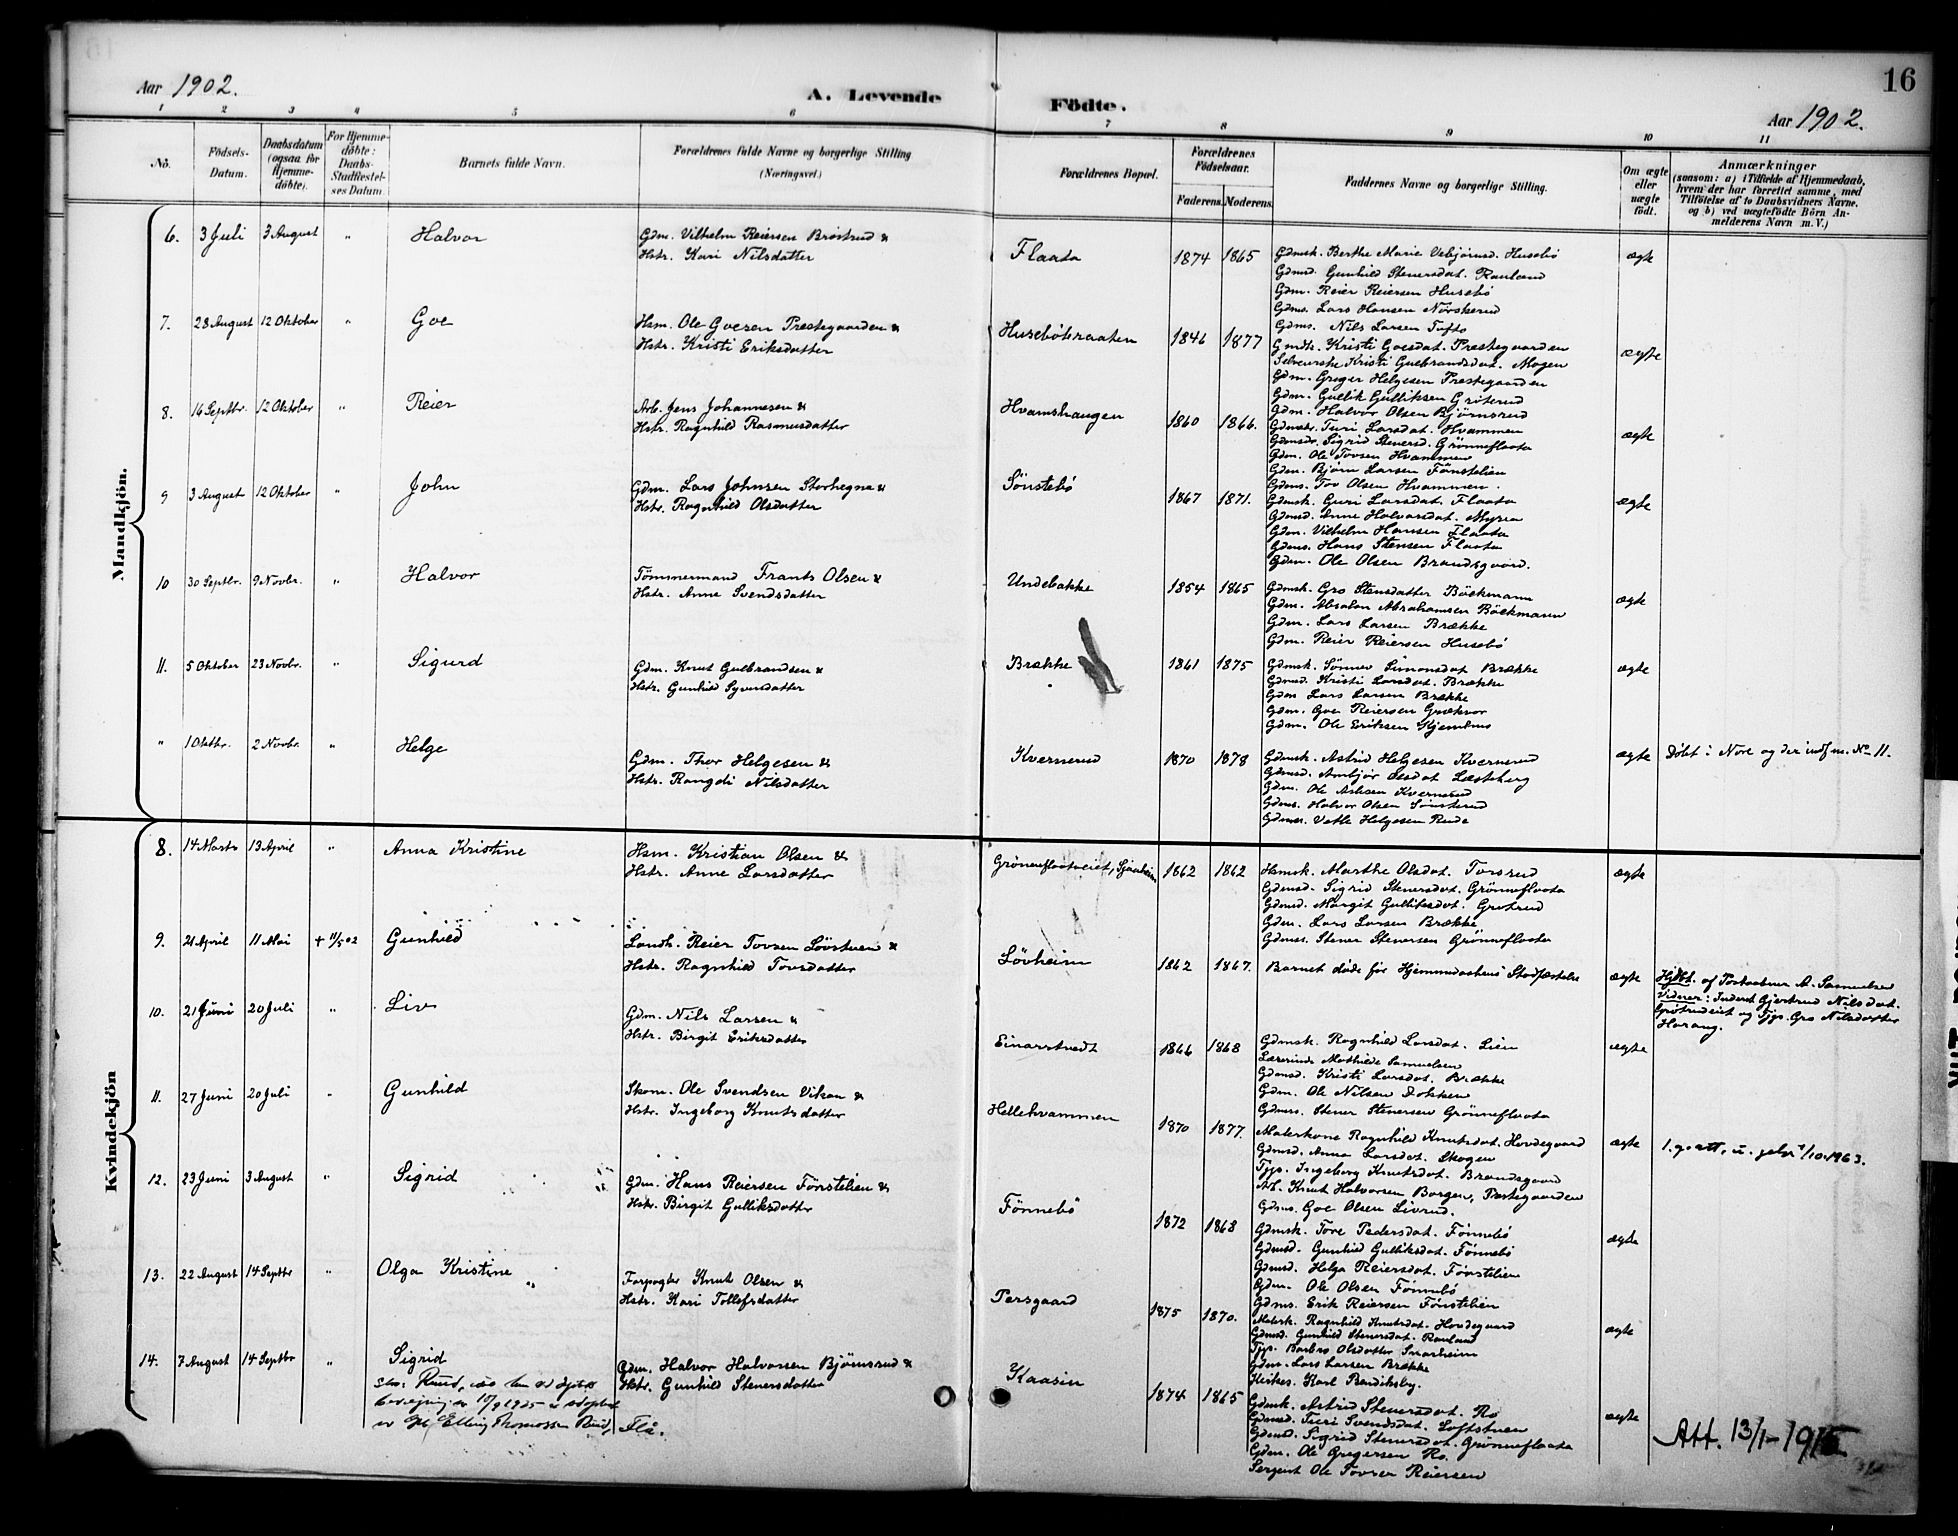 16
Aar 1902.
A. Levende Födte.
Aar 1902.
1 2 3 4 5 6 7 8 9 10 11
No.
Födsels-Datum.
Daabsdatum (ogsaa for Hjemme-døbte).
For Hjemme-døbte: Daabs-Stadfæstel-ses Datum.
Barnets fulde Navn.
Forældrenes fulde Navne og borgerlige Stilling (Næringsvei.)
Forældrenes Bopæl.
Forældrenes Födselsaar.
Faderens. Moderens.
Faddernes Navne og borgerlige Stilling.
Om ægte eller uægte født.
Anmærkninger
(saasom: a) i Tilfælde af Hjemmedaab,
hvem der har forrettet samme, med
Tilføielse af to Daabsvidners Navne.
og b) ved uægtefödte Börn An-
melderens Navn m. V.)
Mandkjön.
6. 3 Juli 3 August " Halvor
Gdm. Vilhelm Reiersen Bröstrud &
Hstr. Kari Nilsdatter
Flaata 1874 1865
Gdmsk. Berthe Marie Vebjörnsd. Husebö
Gdmsd. Gunhild Stenersdat. Rauland
Gdm. Reier Reiersen Husebö
Gdms. Lars Hansen Nörsterud
Gdms. Nils Larsen Tufto
ægte
7. 28 August 12 Oktober " Goe
Hsm. Ole Goesen Præstegaarden &
Hstr. Kristi Eriksdatter
Husebötraaten 1846 1877
Gmdtr. Kristi Goesdat. Præstegaarden
Kristi Gulbrandsdat. Mogen
Gdm. Greger Helgesen Præstegaarden
Gdm. Gullik Gulliksen Gröterud
Gdm. Halvor Olsen Björnsrud
ægte
8. 16 Septbr. 12 Oktober " Reier
Arb. Jens Johannesen &
Hstr. Ragnhild Rasmusdatter
Hvamshaugen 1860 1866.
Gdmsk. Turi Larsdat. Hvammen
Gdmsd. Sigrid Stenersd. Grönneflaata
Gdm. Ole Tovsen Hvammen
Gdm. Björn Larsen Fönstelien
Gdms. Tov Olsen Hvammen.
ægte
9 3 August 12 Oktober " John
Gdm. Lars Johnsen Storhegna &
Hstr. Ragnhild Olsdatter
Sönstebö 1867 1871.
Gdmsk. Guri Larsdat. Flaata
Gdmsd. Anne Halvorsdat. Myren
Gdm. Vilhelm Hansen Flaata
Gdms. Hans Stensen Flaata
Gdm. Ole Olsen Brandsgaard.
ægte
10 30 Septbr. 9 Novbr. " Halvor
Tömmermand Frants Olsen &
Hstr. Anne Svendsdatter
Undebakke 1854 1865
Gdmsk. Gro Stensdatter Böckmann
Gdm. Absalon Abrahamsen Böckmann
Gdm. Lars Larsen Brække
Gdm. Reier Reiersen Husebö
ægte
11. 5 Oktober 23 Novbr. " Sigurd
Gdm. Knut Gulbrandsen &
Hstr. Gunhild Syversdatter
Brække 1861 1875
Gdmsk. Sönnev Simonsdat. Brække
Gdmsd. Kristi Larsdat. Brække
Gdm Lars Larsen Brække
Gdm. Goe Reiersen
Gdm. Ole Eriksen
ægte
" 1 Oktbr. 2 Novbr. " Helge
Gdm. Thor Helgesen &
Hstr. Rangdi Nilsdatter
Kvernerud 1870 1878
Gdmsk. Astrid Helgesen Kvernerud
Gdmsd. Ambjör Olsdat
Gdm. Ole Kvernerud
Gdms. Halvor Olsen Sönsterud
Gdms. Vetle Helgesen Rude
ægte
Döbt i Nore og der indf m. No 11.
Kvindekjön
8. 14 Marts 13 April " Anna Kristine
Hsm. Kristian Olsen &
Hstr. Anne Larsdatter
Grönneflaateiet, 1862 1862
Hsmsk. Marthe Olsdat. Torsrud
Gdmsd. Sigrid Stenersdat. Grönneflaata
Gdmsd. Margit Gulliksdat. Grotrud
Gdm. Lars Larsen Brække
Gdms. Stener Stenersen Grönneflaata
ægte
9. 21 April 11 Mai + 11/5 02 Gunhild
Landh. Reier Tovsen Lövstuen &
Hstr. Ragnhild Tovsdatter
Lövheim 1862 1867.
Barnet döde før Hjemmedaabens Stadfæstelse
ægte
Hjdbt. af A. Samuelsen
Vidner: Gjertrud Nilsdat.
og Tjp. Gro Nilsdatter
Harang.
10. 21 Juni 20 Juli " Liv
Gdm. Nils Larsen &
Hstr. Birgit Eriksdatter
Einarstvedt 1866 1868
Gdmsk. Ragnhild Larsdat. Lien
Lærerinde Mathilde Samuelsen
Gdmsd. Kristi Larsdat. Brække
Gdm. Ole Nilsen Dokken
Gdms. Stener Stenersen Grönneflaata
ægte
11. 27 Juni 20 Juli " Gunhild
Skom. Ole Svendsen Vikan &
Hstr. Ingeborg Knutsdatter
Hellehvammen 1870 1877.
Malerkone Ragnhild Knutsdat. Hovdegaard
Gdmsd. Anna Larsdat. Skogen
Tjp. Ingeborg Knutsdat. Brandsgaard
Arb. Knut Halvorsen Borgen, Præstegaarden
Gdms. Goe Olsen Livrud.
ægte
1/10. 1963.
12. 23 Juni 3 August " Sigrid
Gdm. Hans Reiersen Fönstelien &
Hstr. Birgit Gulliksdatter
Fönnebö 1872 1868
Gdmsk. Tore Pedersdat. Fönnebö
Gdmsd. Gunhild Gulliksdat. Fönnebö
Gdmsd. Helga Reiersdat. Fönstelien
Gdm. Ole Olsen Fönnebö
Gdms. Erik Reiersen Fönstelien
ægte
13. 22 August 14 Septbr " Olga Kristine
Forpagter Knut Olsen &
Hstr. Kari Tollefsdatter
Persgaard 1875 1870.
Malerk. Ragnhild Knutsdat. Hovdegaard
Gdmsd. Gunhild Stenersdat. Rauland
Tjp. Barbro Olsdatter Snarheim
Gdm. Lars Larsen Brække
Karl Bendiksby.
ægte
14. 7 August 14 Septbr " Sigrid
Gdm. Halvor Halvorsen Björnsrud &
Hstr. Gunhild Stenersdatter
Ruud,
bevilgning av 17/9 1925
av Elling Thomassen Ruud, Flå.
Kaasin 1874 1865
Gdmsk. Astrid Stenersdat. Ro
Gdmsd. Turi Svendsdat. Loftstuen
Gdmsd. Sigrid Stenersdat. Grönneflaata
Gdm. Ole Gregersen Ro.
Sergent Ole Tovsen Reiersen
ægte
Att. 13/1-1915